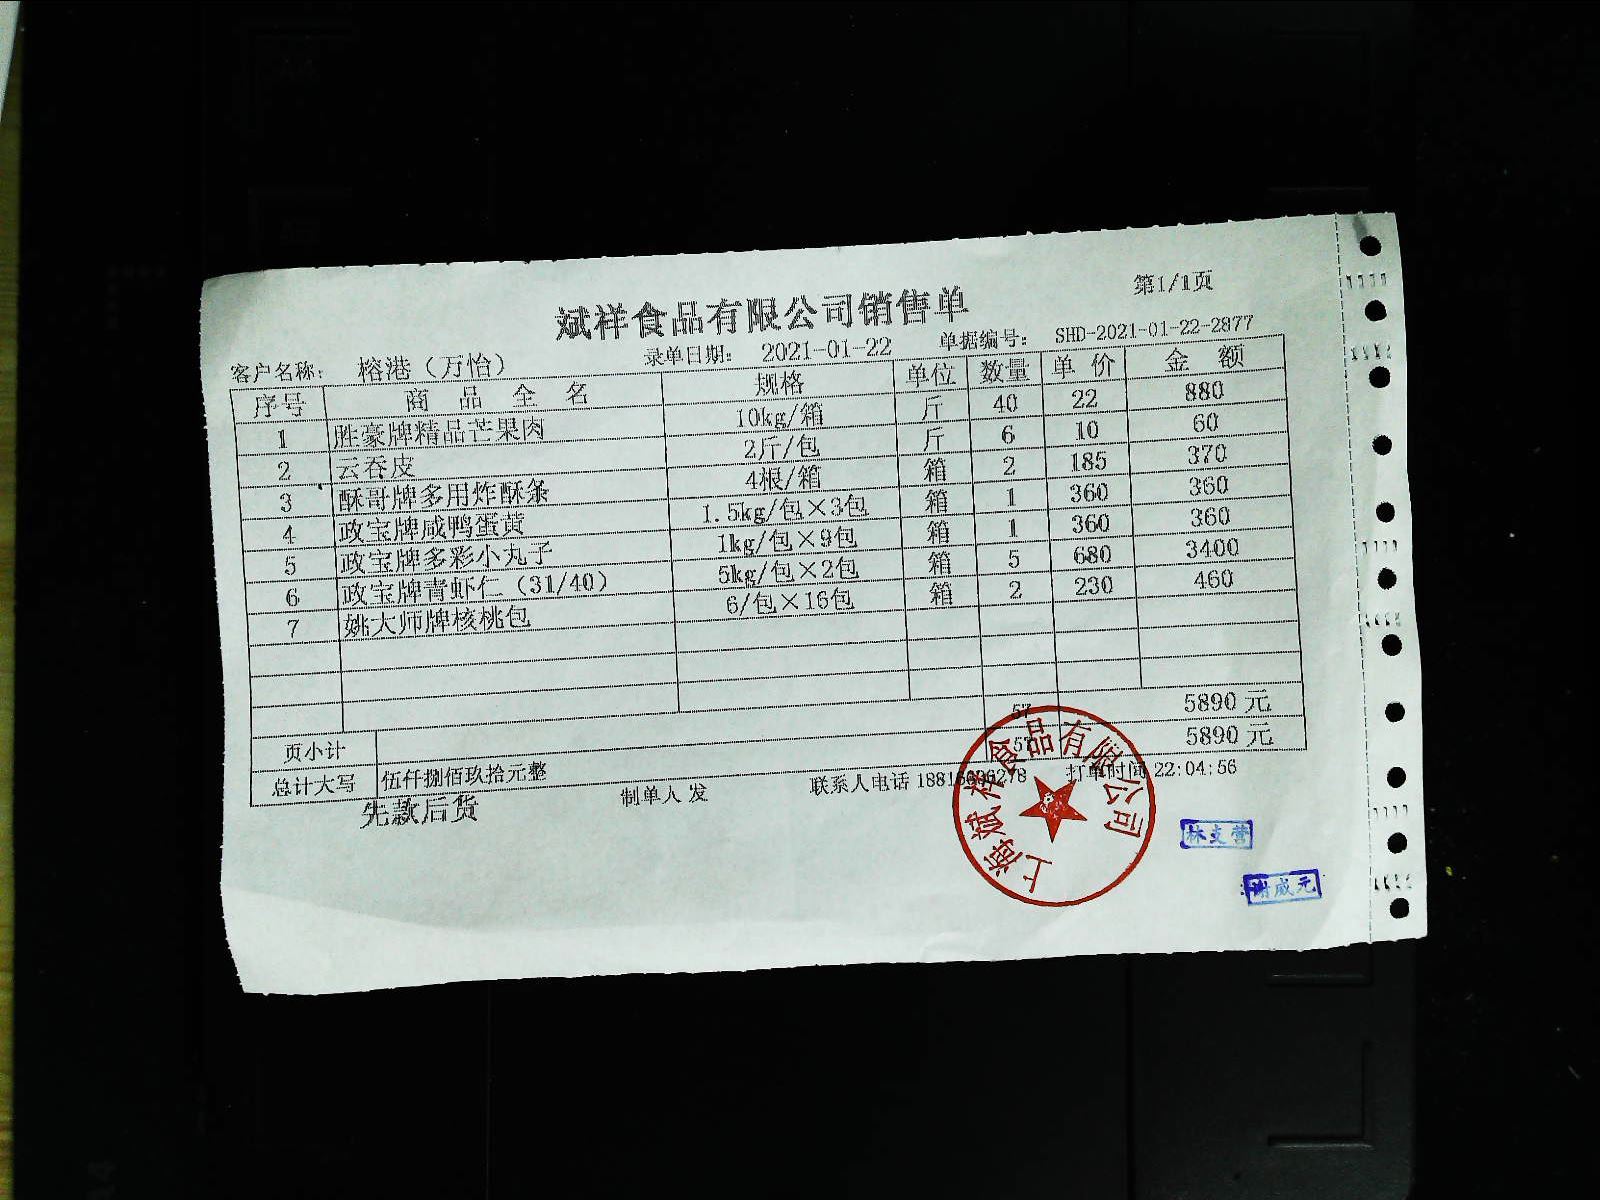 第1/1页
斌祥食品有限公司销售单
客户名称： 榕港（万怡） 录单日期： 2021-01-22 单据编号： SHD-2021-01-22-2877
序号 商品全名 规格 单位 数量 单价 金额
1 胜豪牌精品芒果肉 10kg/箱 斤 40 22 880
2 云吞皮 2斤/包 斤 6 10 60
3 酥哥牌多用炸酥条 4根/箱 箱 2 185 370
4 政宝牌咸鸭蛋黄 1.5kg/包×3包 箱 1 360 360
5 政宝牌多彩小丸子 1kg/包×9包 箱 1 360 360
6 政宝牌青虾仁（31/40） 5kg/包×2包 箱 5 680 3400
7 姚大师牌核桃包 6/包×16包 箱 2 230 460
页小计 57 5890 元
总计大写 伍仟捌佰玖拾元整 57 5890 元
先款后货 制单人 发 联系人电话 打单时间 22:04:56
上海斌祥食品有限公司
林支营
谢威元